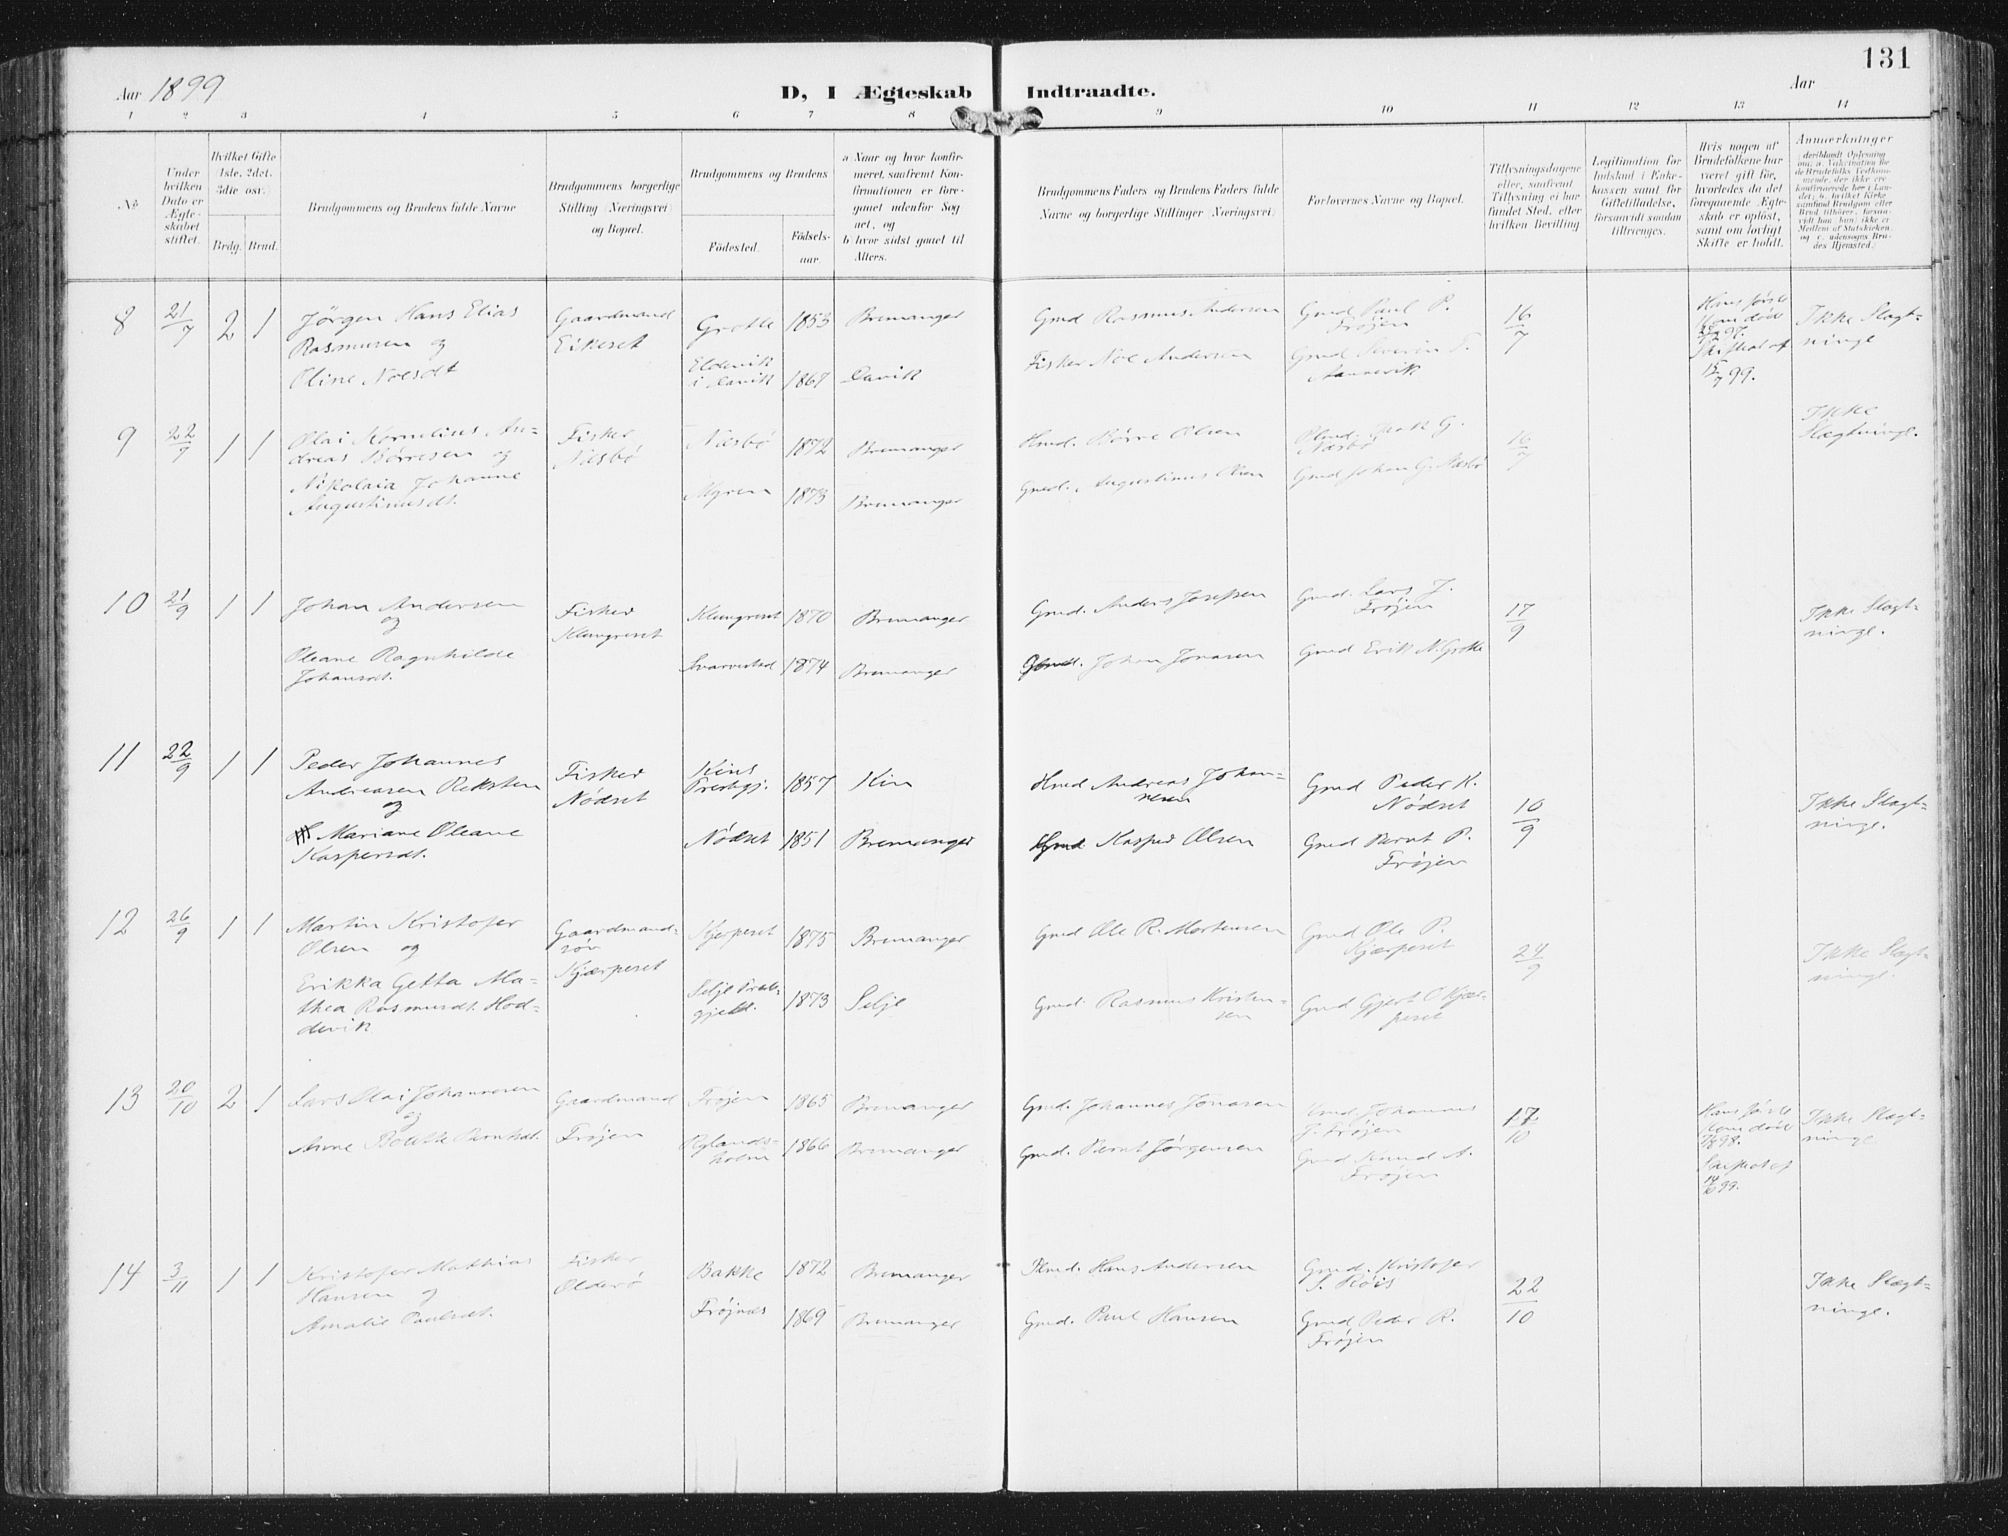 131
Aar 1899
D, I Ægteskab Indtraadte.
Aar
1 2 3 4 5 6 7 8 9 10 11 12 13 14
No
Under hvilken Dato er Ægteskabet stiftet.
Hvilket Gifte 1ste, 2det, 3die osv.
Brdg. Brud.
Brudgommens og Brudens fulde Navne
Brudgommens borgerlige Stilling (Næringsvei) og Bopæl.
Brudgommens og Brudens
Födested.
Födselsaar.
a Naar og hvor konfirmeret, saafremt Konfirmationen er foregaaet udenfor Sognet, og
b hvor sidst gaaet til Alters.
Brudgommens Faders og Brudens Faders fulde Navne og borgerlige Stillinger (Næringsvei)
Forlovernes Navne og Bopæl.
Tillysningsdagene eller, saafremt Tillysning ei har fundet Sted, efter hvilken Bevilling
Legitimation for Indskud i Enkekassen samt for Giftetilladelse, forsaavidt saadan tiltrænges.
Hvis nogen af Brudefolkene har været gift för, hvorledes da det foregaaende Ægteskab er oplöst, samt om lovligt Skifte er holdt.
Anmærkninger
8 21/7 2 1
Jörgen Hans Elias
Rasmusen og
Oline Noesdt
Gaardmand
Eikeset
Grotle 1853 Bremanger
Eldevik
i Davik 1867 Davik
Gmd Rasmus Andersen
Fisker Noe Andersen
Gmd Paul P.
Frøjen
Gmd Severin T.
16/7
Hans første
Kone död
15/7 99.
Ikke Slægt-
ninge
9 22/7 1 1
Olai Kornelius An-
dreas Börresen og
Nikolaia Johanne
Augustinusdt.
Fisker
Næsbö
Næsbö 1872 Bremanger
Myren 1873 Bremanger
Hmd. Börre Olsen
Gmd. Augustinus Olsen
Næsbö
Gmd Johan G. Næsbö
16/7
Ikke
Slægtninge.
10 21/9 1 1
Johan Andersen
og
Oleane Ragnhilde
Johansdt.
Fisker
Klungreset
Klungreset 1870 Bremanger
Svarvestad 1874 Bremanger
Gmd. Anders Josefsen
Gmd. Johan Jonasen
Gmd. Lars J.
Frøjen
Gmd Erik N. Grotle
17/9
Ikke Slægt-
ninge.
11 22/9 1 1
Peder Johannes
Andreasen Reksten
og
Mariane Oleane
Kaspersdt.
Fisker
Nødset
Kins
Præstgj. 1857 Kin
Nødset 1851 Bremanger
Hmd Andreas Johan-
nesen
Gmd Kasper Olsen
Gmd Peder K.
Nødset
Gmd Bernt P.
Frøjen
10/9
Ikke Slægt-
ninge.
12 26/9 1 1
Martin Kristofer
Olsen og
Erikka Getta Ma-
thea Rasmusdt. Hod-
devik
Gaardmand-
sön
Kjærpeset
Kjerpeset 1875 Bremanger
Selje Præst-
gjeld. 1873 Selje
Gmd Ole R. Mortensen
Gmd. Rasmus Kristen-
sen
Gmd Ole P.
Kjærpeset
Gmd Gjert O Kjær-
peset
24/9
Ikke Slægt-
ninge.
13 20/10 2 1
Lars Olai Johannesen
og
Anne Bolette Berntsdt.
Gaardmand
Frøjen
Frøjen 1865 Bremanger
Rylands-
holm 1866 Bremanger
Gmd. Johannes Jonasen
Gmd. Bernt Jørgensen
Gmd. Johannes
J. Frøjen
Gmd Knud A.
Frøjen
17/10
Hans første
Kone död
Ikke Slægt-
ninge
14 3/11 1 1
Kristofer Mathias
Hansen og
Amalie Paulsdt.
Fisker
Olderö
Bakke 1872 Bremanger
Frøjnæs 1869 Bremanger
Pmd. Hans Andersen
Gmd. Paul Hansen
Gmd. Kristofer
S. Röis
Gmd Peder R.
Frøjen
22/10
Ikke Slægt-
ninge.